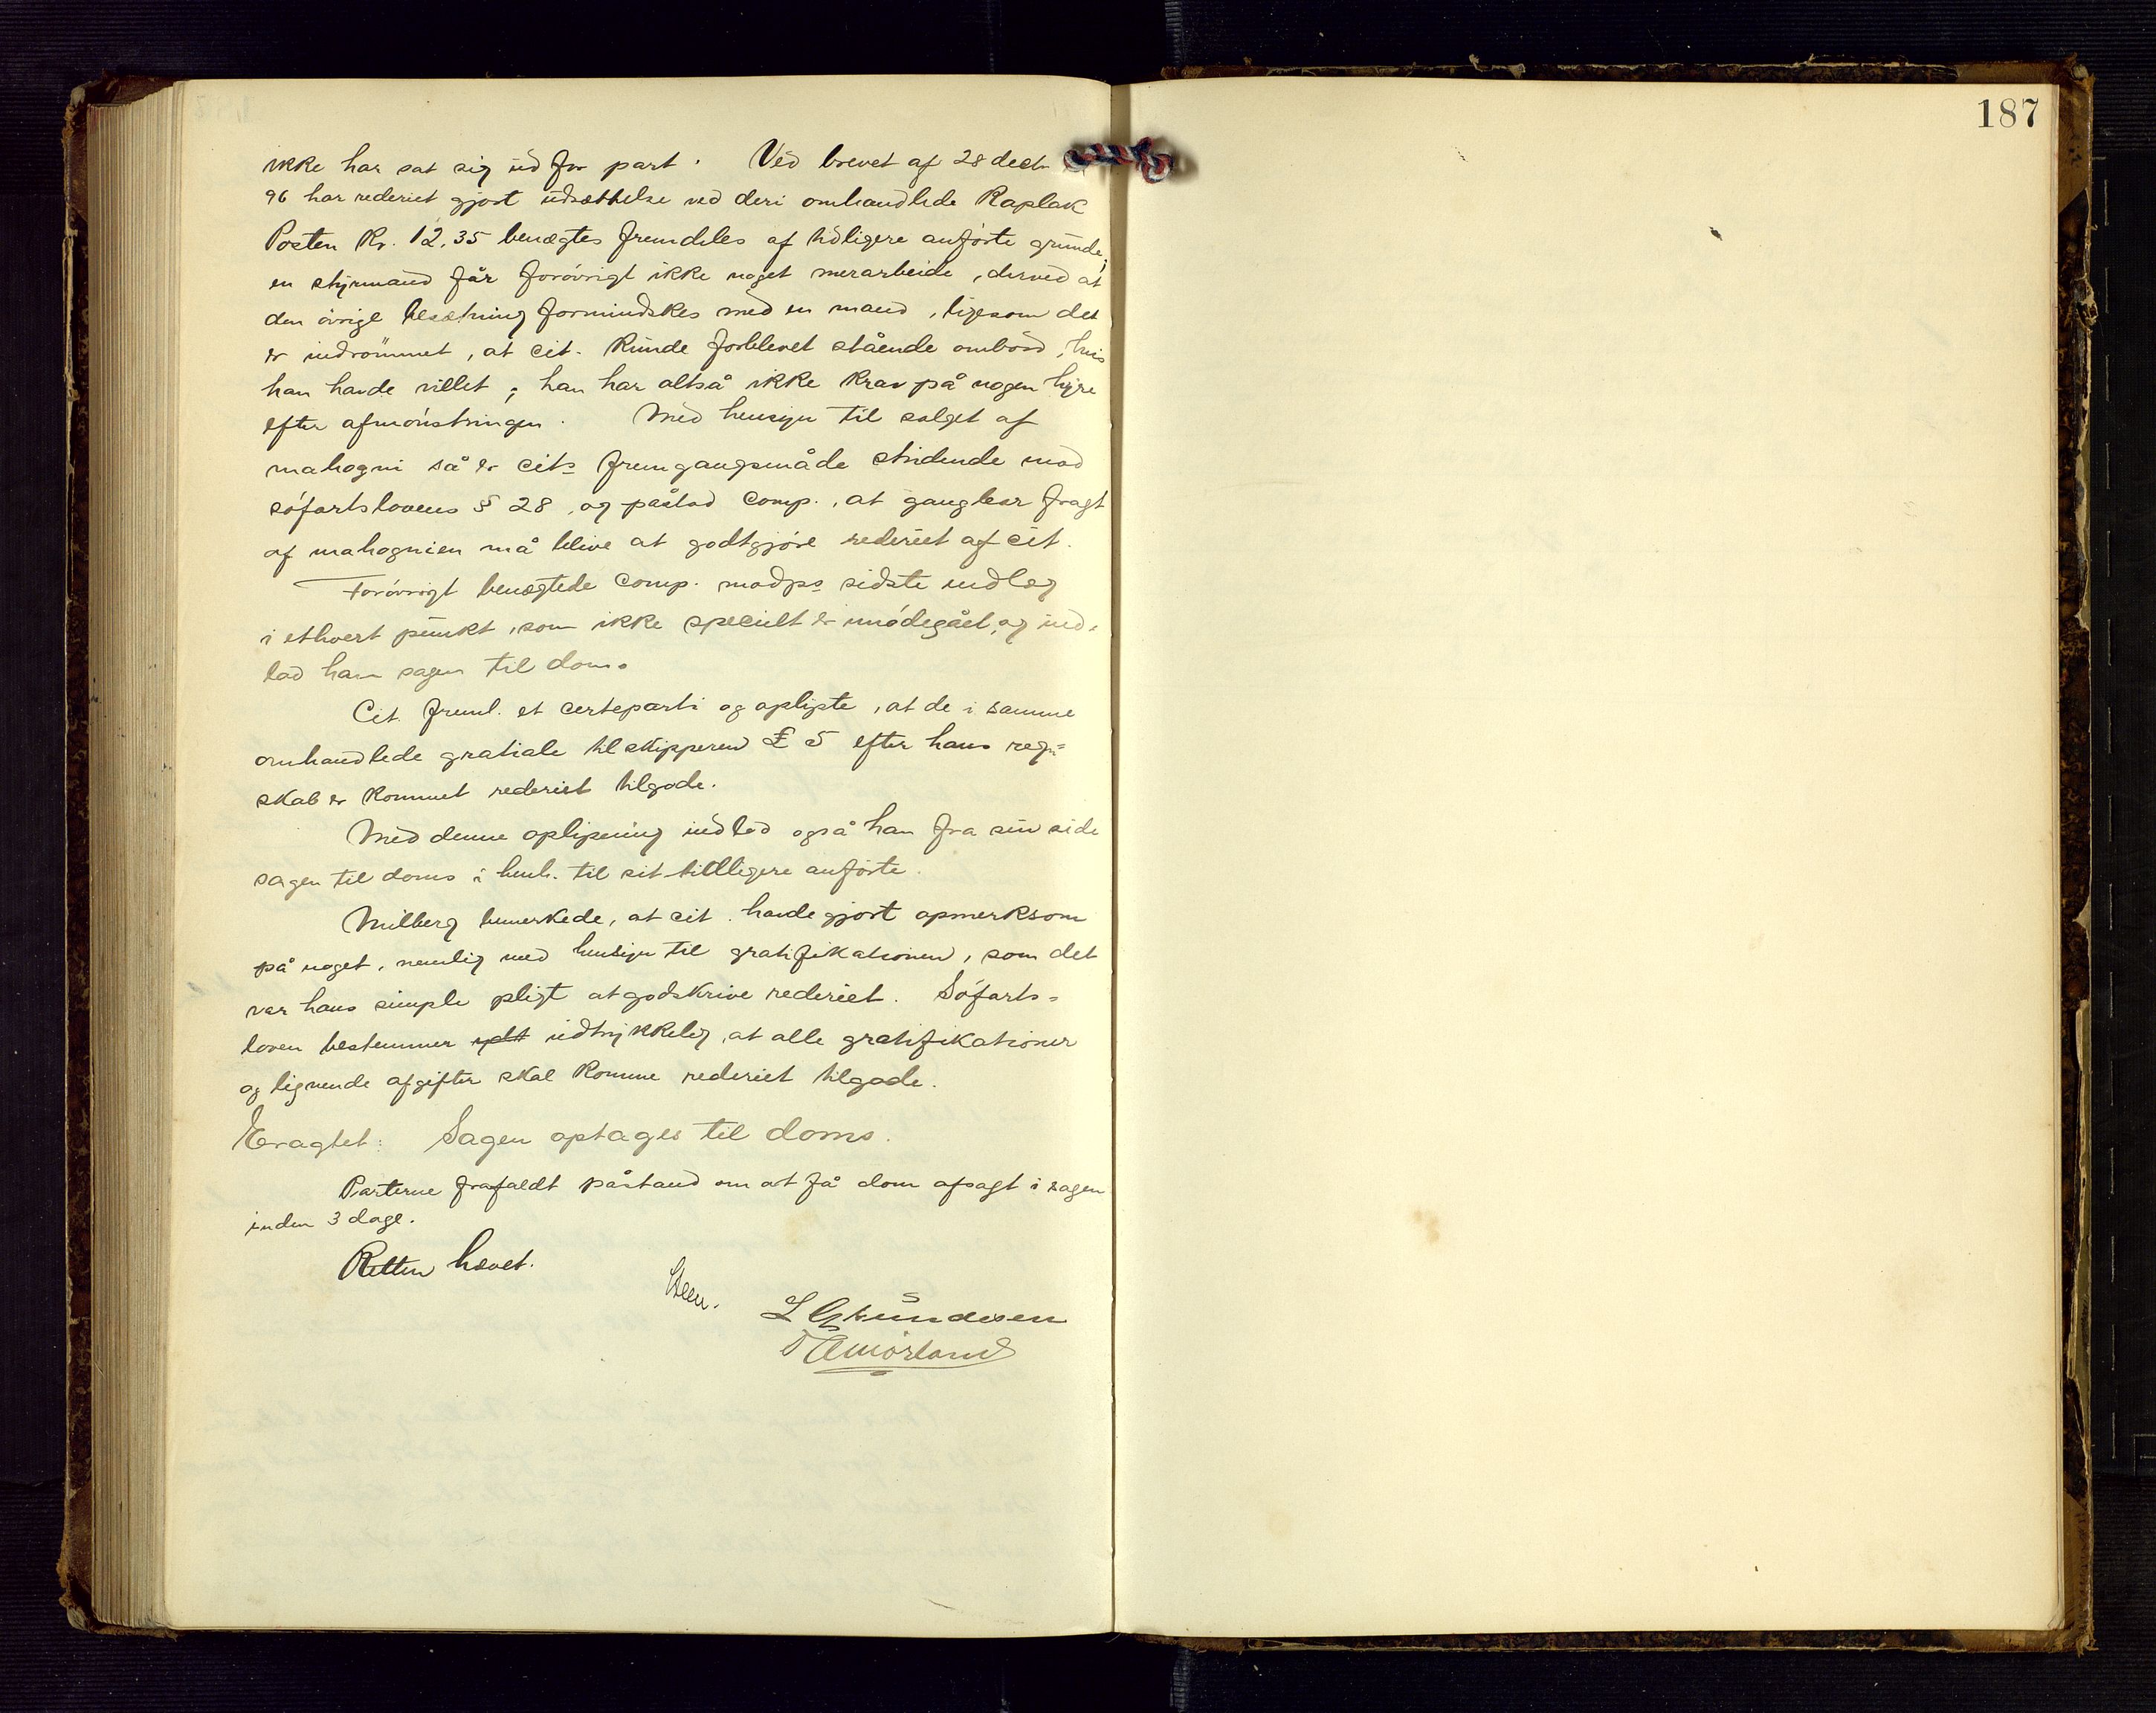 187
ikke har sat sig ud for part. Ved brevet af 28 decbr
96 har rederiet gjort udsættelse ved deri omhandlede Kaplak
Posten Kr. 12,35 benægtes fremdeles af tidligere anførte grunde;
en styrmand får forøvrigt ikke noget merarbeide, derved at
den øvrige besætning formindskes med en mand, ligesom det
er indrømmet, at cit. kunde forblevet stående ombord, hvis
han havde villet; han har altså ikke krav på nogen hyre
efter afmønstringen. Med hensyn til salget af
mahogni så er cits fremgangsmåde stridende mod
søfartslovens § 28, og påstod comp., at gangbar fragt
af mahognien må blive at godtgjøre rederiet af cit.
Forøvrigt benægtede comp. modps sidste indlæg
i ethvert punkt, som ikke specielt er imødegået, og ind-
lod han sagen til doms.
Cit. freml. et certeparti og oplyste, at de i samme
omhandlede gratiale til skipperen £ 5 efter hans regn-
skab er kommet rederiet tilgode.
Med denne oplysning indlod også han fra sin side
sagen til doms i henh. til sit tidligere anførte.
Milberg bemerkede, at cit. havde gjort opmerksom
på noget, nemlig med hensyn til gratifikationen, som det
var hans simple pligt at godskrive rederiet. Søfarts-
loven bestemmer udtrykkelig, at alle gratifikationer
og lignende afgifter skal komme rederiet tilgode.
Eragtet: Sagen optages til doms.
Parterne frafaldt påstand om at få dom afsagt i sagen
inden 3 dage.
Retten hævet.
Steen.
L Gundersen
Mørland